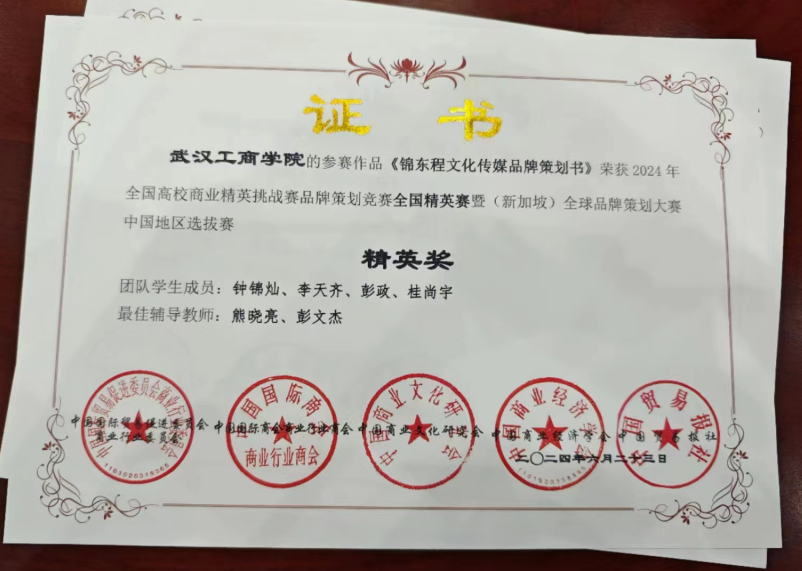 证书
武汉工商学院的参赛作品《锦东程文化传媒品牌策划书》荣获2024年
全国高校商业精英挑战赛品牌策划竞赛全国精英赛暨（新加坡）全球品牌策划大赛
中国地区选拔赛
精英奖
团队学生成员：钟锦灿、李天齐、彭政、桂尚宇
最佳辅导教师：熊晓亮、彭文杰
中国国际贸易促进委员会 中国国际商会商业行业商会 中国商业文化研究会 中国商业经济学会 中国贸易报社
商业行业委员会
二〇二四年六月二十三日
中国国际贸易促进委员会商业行业委员会
中国国际商会
商业行业商会
中国商业文化研究会
中国商业经济学会
中国贸易报社